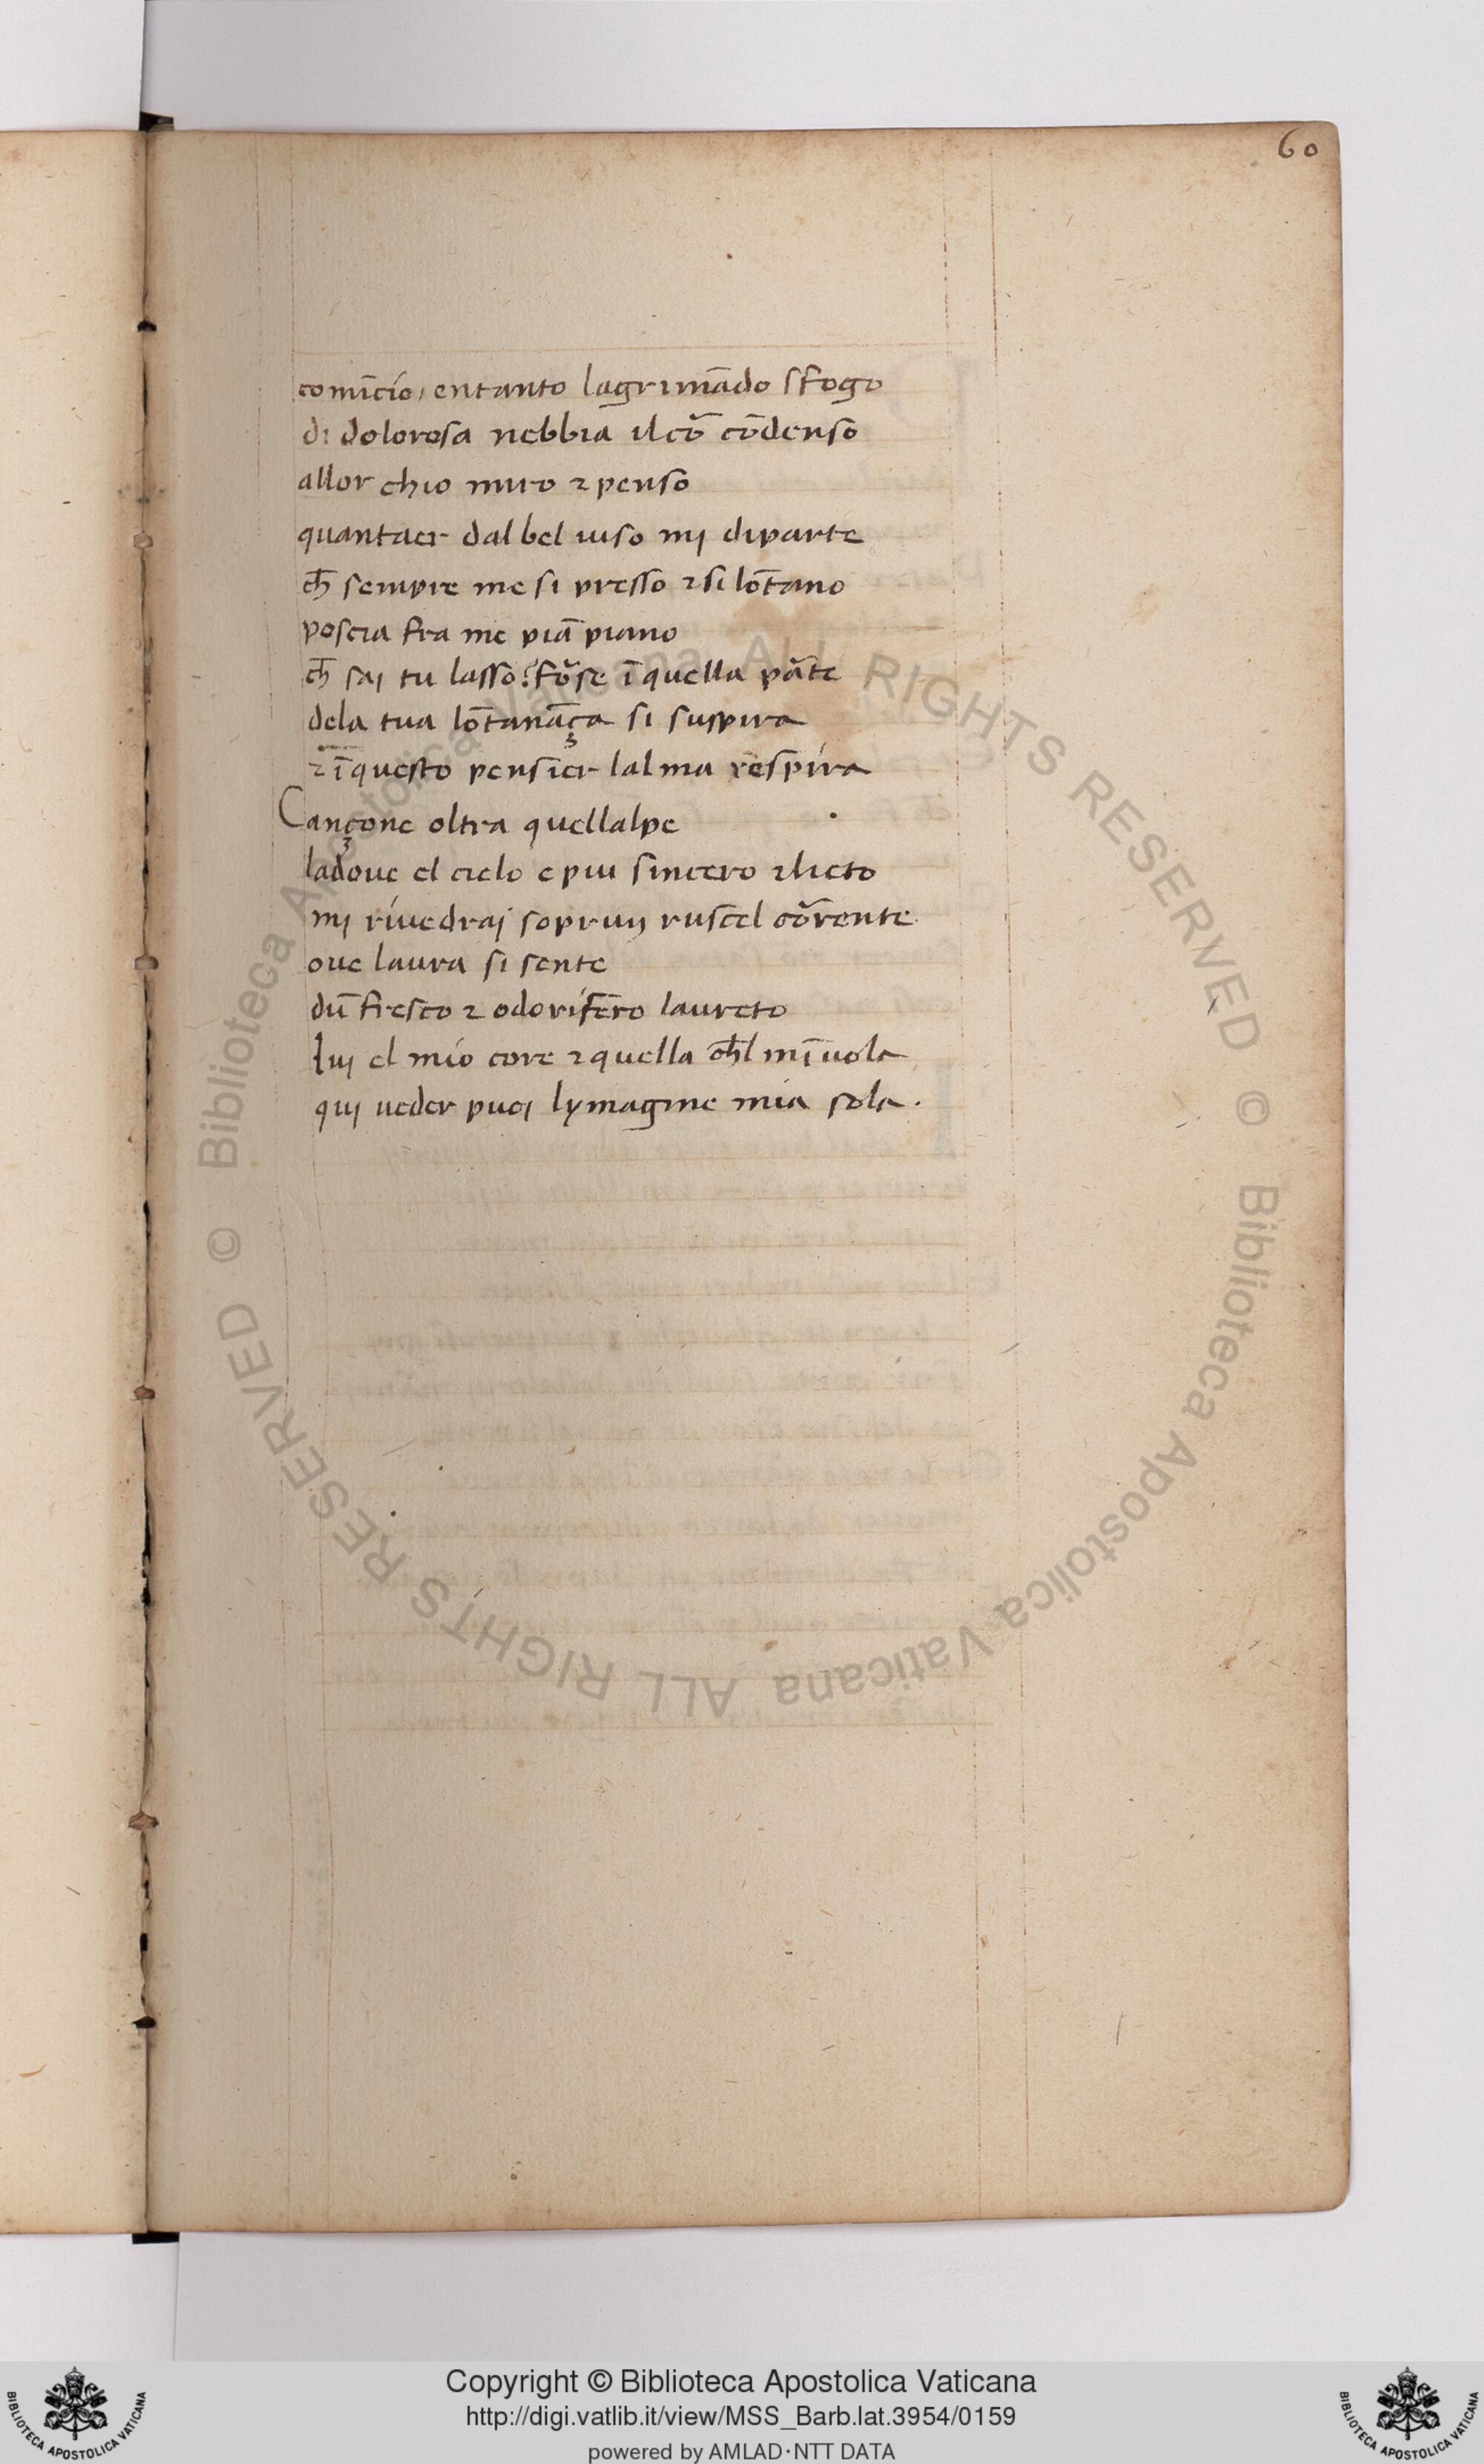 60
comīcio, entanto lagrimādo sfogo
di dolorosa nebbia il cor̄ cōdenso
allor chio miro ⁊ penso
quantaer dal bel uiso mi diparte
ch̄ sempre me si presso ⁊ si lōtano
poscia fra me piā piano
ch̄ saj tu lasso? for̄se ī quella par̄te
dela tua lōtanāça si suspira
⁊ ī questo pensier lalma respira
Cançone oltra quellalpe
ladoue el cielo e piu sincero ⁊ lieto
mi riuedraj soprun ruscel cor̄rente
oue laura si sente
dū fresco ⁊ odorifero laureto
Iuj el mio core ⁊ quella ch̄l mīuola
quj ueder puoj lymagine mia sola.
© Biblioteca Apostolica Vaticana ALL RIGHTS RESERVED © Biblioteca Apostolica Vaticana ALL RIGHTS RESERVED
Copyright © Biblioteca Apostolica Vaticana
http://digi.vatlib.it/view/MSS_Barb.lat.3954/0159
powered by AMLAD·NTT DATA
BIBLIOTECA APOSTOLICA VATICANA
BIBLIOTECA APOSTOLICA VATICANA